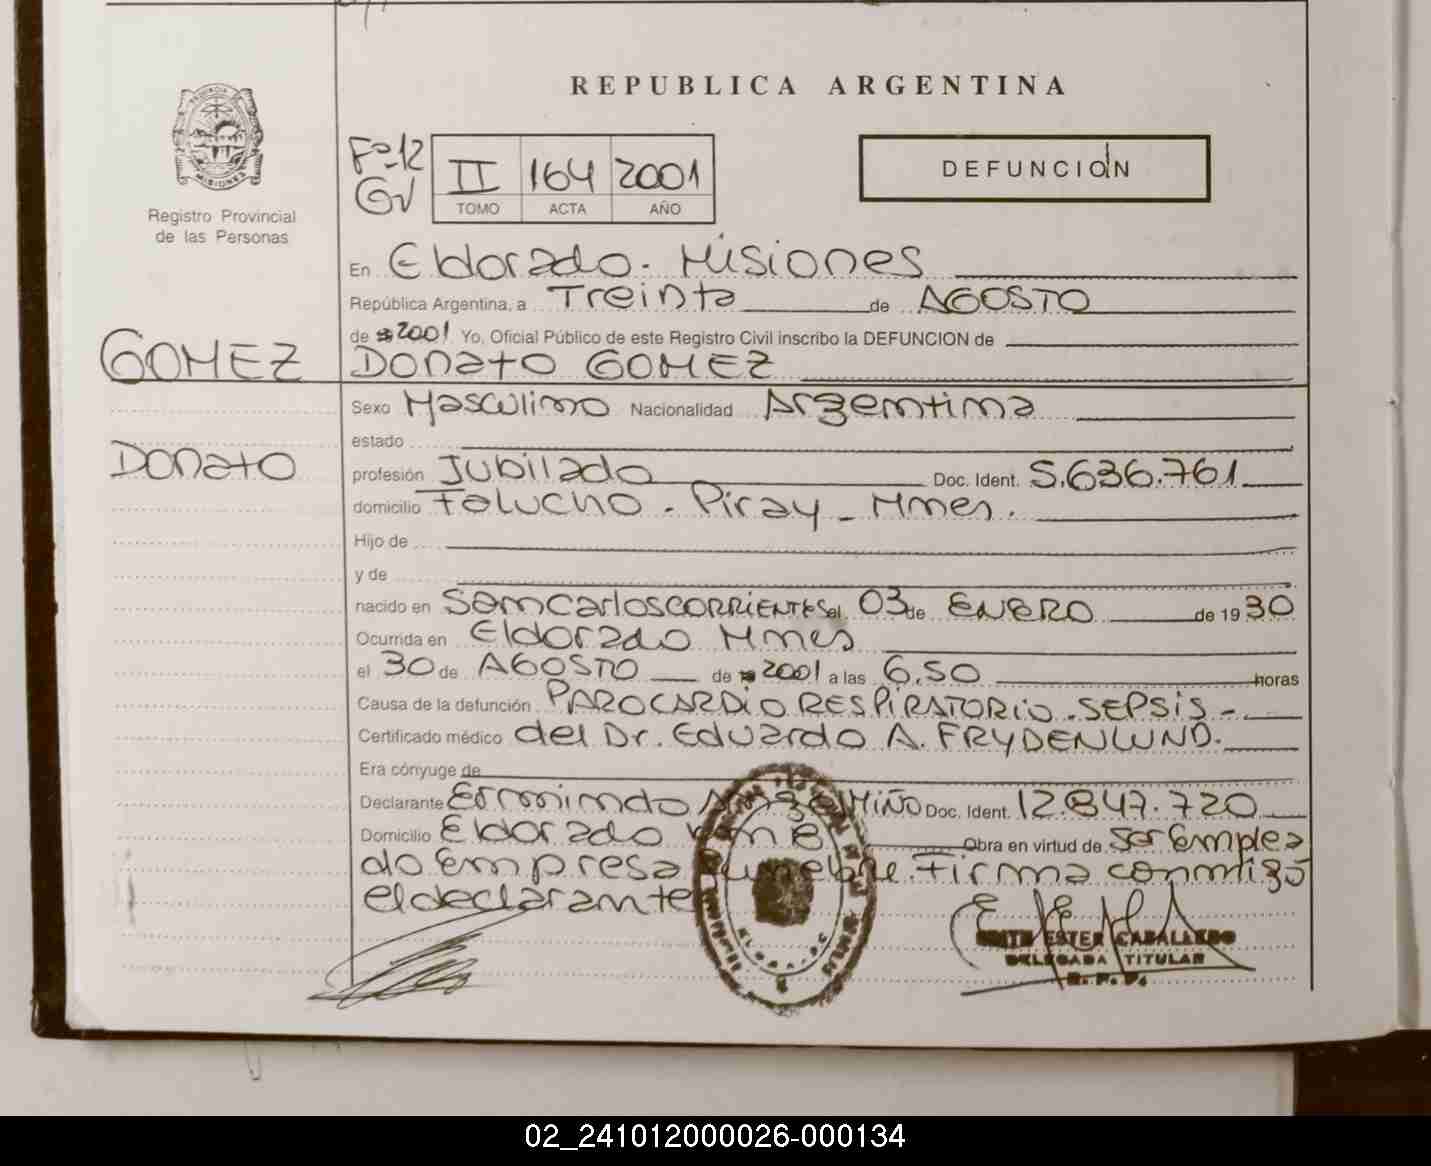 REPUBLICA ARGENTINA
PROVINCIA DE MISIONES
Registro Provincial
de las Personas
Fº-12
GV
II 164 2001
TOMO ACTA AÑO
DEFUNCIÓN
En Eldorado. Misiones
República Argentina, a Treinta de AGOSTO
de 2001 Yo, Oficial Público de este Registro Civil inscribo la DEFUNCION de
GOMEZ DONATO GOMEZ
Sexo Masculino Nacionalidad Argentina
estado
DONATO profesión Jubilado Doc. Ident. 5.636.761
domicilio Falucho - Piray - Mnes.
Hijo de
y de
nacido en San Carlos CORRIENTES el 03 de ENERO de 1930
Ocurrida en Eldorado Mnes
el 30 de AGOSTO de 2001 a las 6.50 horas
Causa de la defunción PAROCARDIORESPIRATORIO. SEPSIS -
Certificado médico del Dr. Eduardo A. FRYDENLUND.
Era cónyuge de
Declarante Ermindo MIÑO Doc. Ident. 12.847.720
Domicilio Eldorado Obra en virtud de Ser Emplea
do Empresa Funebre. Firma conmigo
el declarante
EDITH ESTER CABALLERO
DELEGADA TITULAR
R. P. P.
02_241012000026-000134